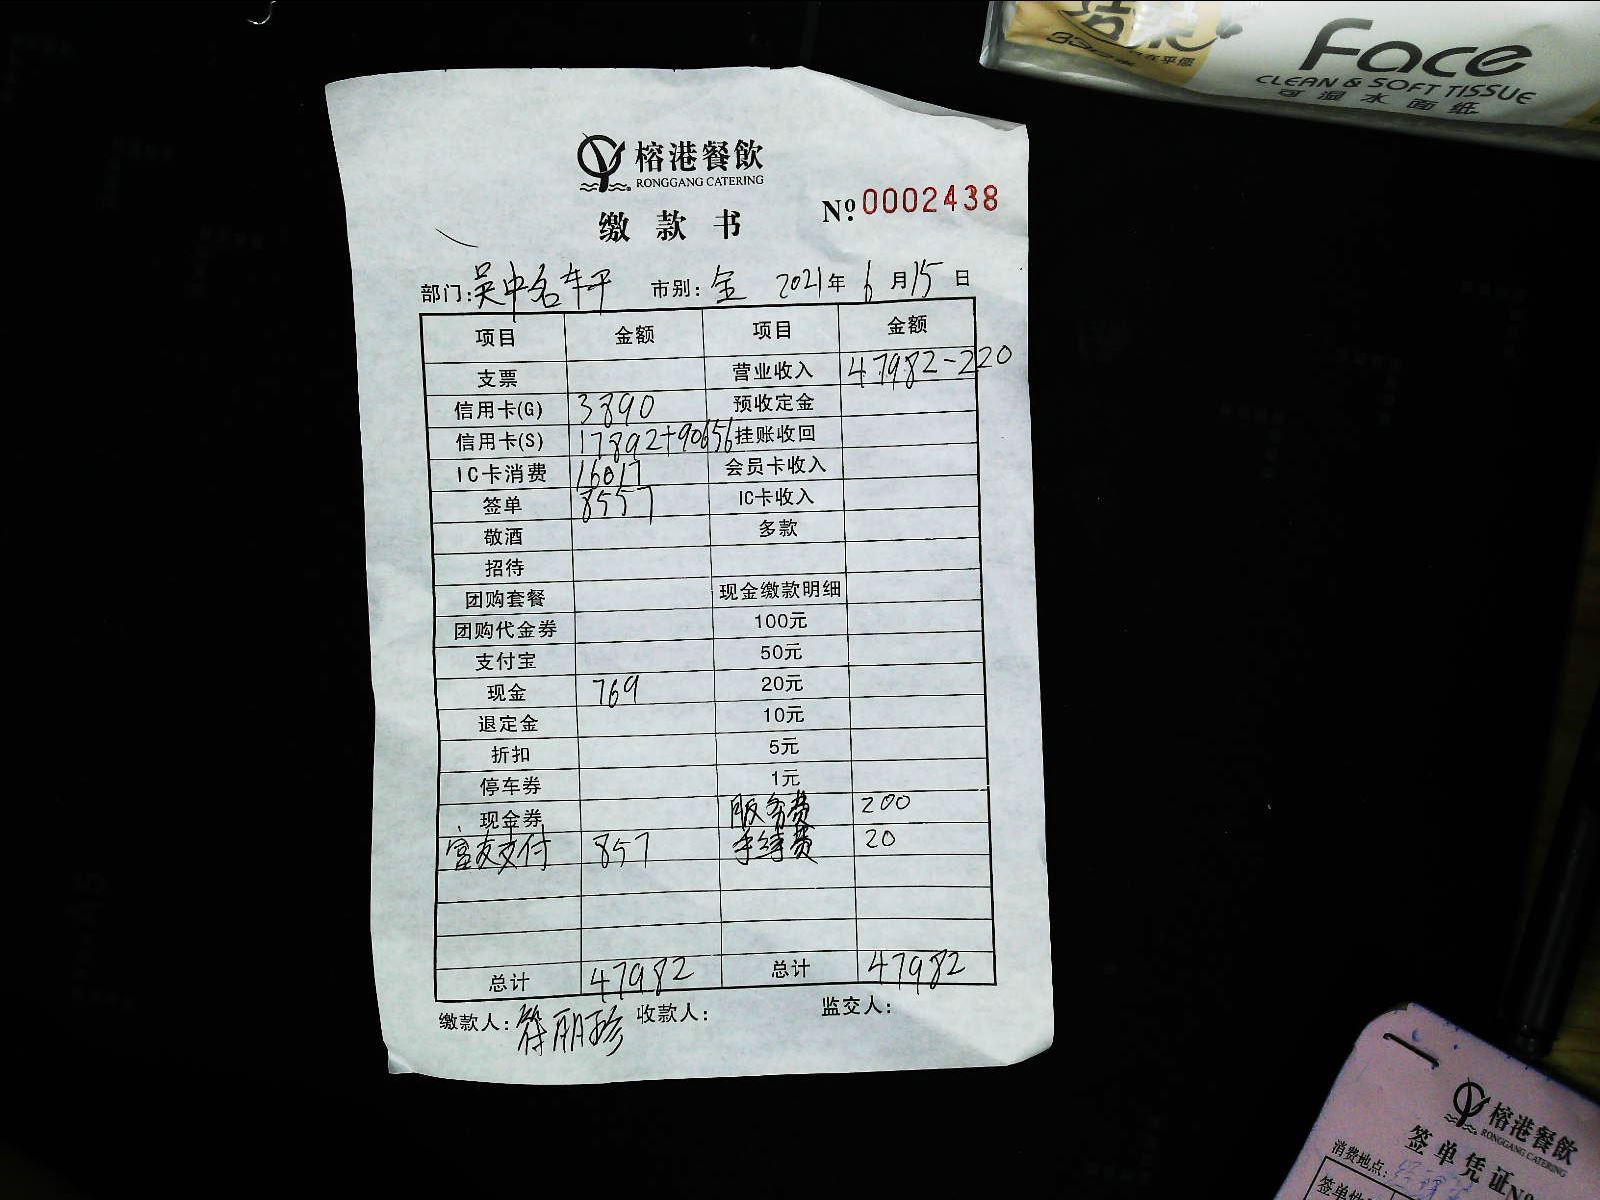 Face
CLEAN & SOFT TISSUE
可湿水面纸
榕港餐飲
RONGGANG CATERING
缴款书
No.0002438
部门: 吴中名车平 市别: 全 2021年6月15日
项目 金额 项目 金额
支票 营业收入 47982-220
信用卡(G) 3890 预收定金
信用卡(S) 17892+90656 挂账收回
IC卡消费 16017 会员卡收入
签单 8557 IC卡收入
敬酒 多款
招待
团购套餐 现金缴款明细
团购代金券 100元
支付宝 50元
现金 769 20元
退定金 10元
折扣 5元
停车券 1元
现金券 服务费 200
支付 857 手续费 20
总计 47982 总计 47982
缴款人: 符丽珍 收款人: 监交人:
榕港餐飲
RONGGANG CATERING
签单凭证No
消费地点:
签单性